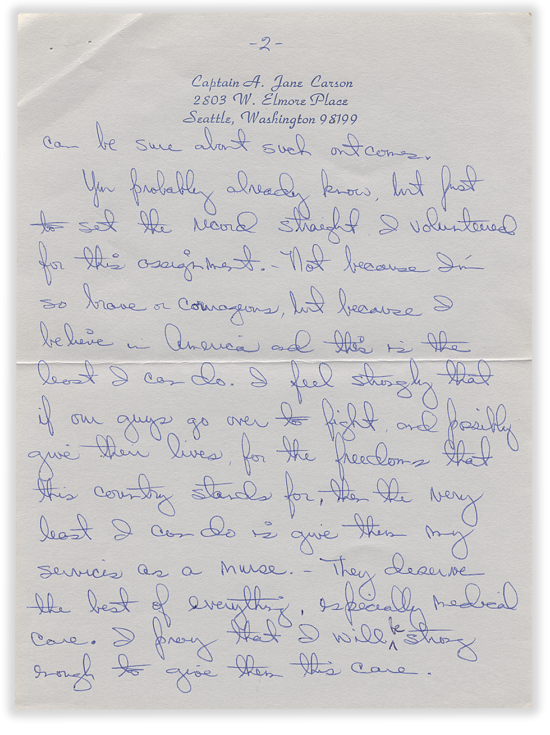 -2-
Captain A. Jane Carson
2803 W. Elmore Place
Seattle, Washington 98199
can be sure about such outcomes.
You probably already know, but just
to set the record straight I volunteered
for this assignment. - Not because I'm
so brave or courageous, but because I
believe in America and this is the
least I can do. I feel strongly that
if our guys go over to fight, and possibly
give their lives, for the freedoms that
this country stands for, then the very
least I can do is give them my
services as a nurse. - They deserve
the best of everything, especially medical
care. I pray that I will be strong
enough to give them this care.